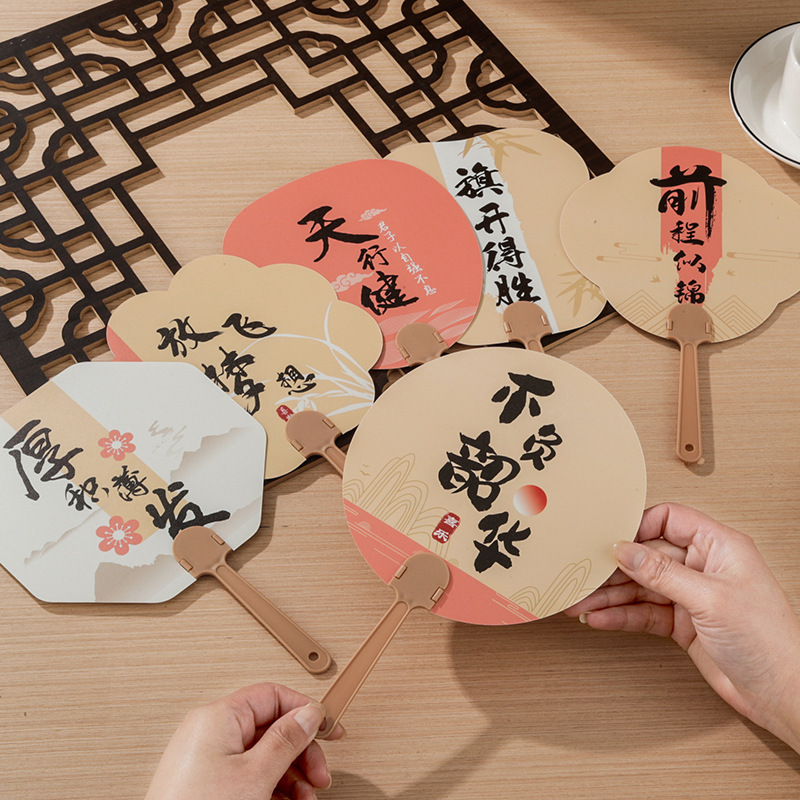 天行健
君子以自强不息
旗开得胜
前程似锦
放飞梦想
厚积薄发
不负韶华
喜乐